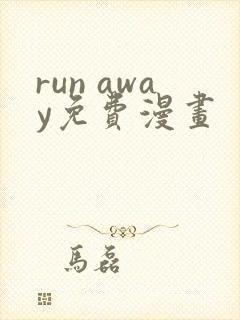 run awa
y免費漫畫
馬磊